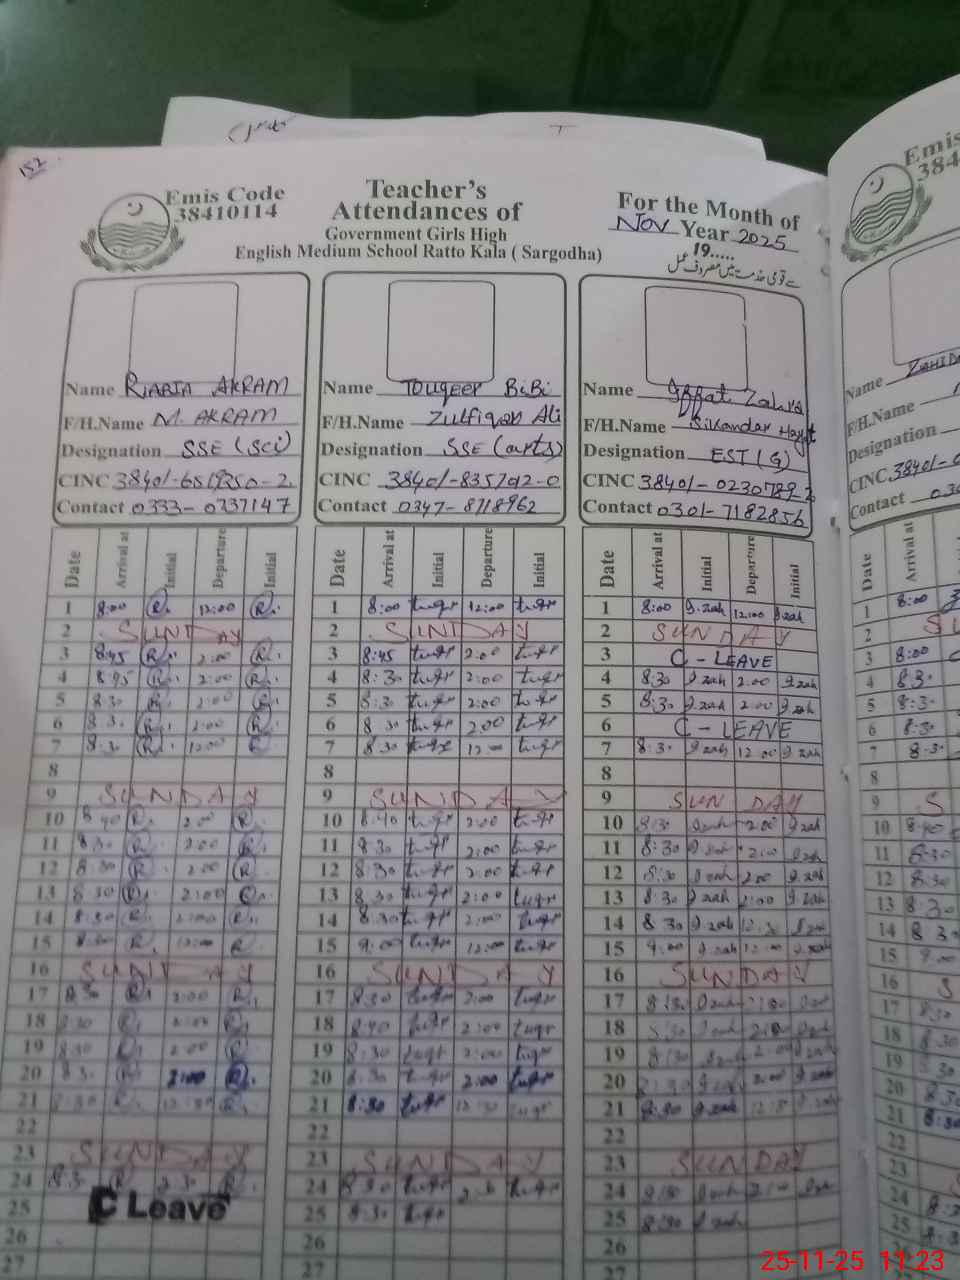 152
Emis Code
38410114
Teacher's
Attendances of
Government Girls High
English Medium School Ratto Kala ( Sargodha)
For the Month of
Nov Year 2025
19.....
سے قومی خدمت میں مصروف عمل
Name AKRAM
F/H.Name M. AKRAM
Designation SSE (Sci)
CINC
Contact 0333-0337147
Name Touqeer BiBi
F/H.Name Zulfiqar Ali
Designation SSE (arts)
CINC 38401-835702-0
Contact 0347-8718962
Name Iffat Zahra
F/H.Name Sikandar Hayat
Designation EST (G)
CINC 38401-0230789-2
Contact 0301-7182856
Date Arrival at Initial Departure Initial
Date Arrival at Initial Departure Initial
Date Arrival at Initial Departure Initial
1 8:00 R. 12:00 R. 1 8:00 tuqr 12:00 tuqr 1 8:00 I.zah 12:00 I.zah
2 SUNDAY 2 SUNDAY 2 SUNDAY
3 8:45 R. 2:00 R. 3 8:45 tuqr 2:00 tuqr 3 C - LEAVE
4 8:45 R. 2:00 R. 4 8:30 tuqr 2:00 tuqr 4 8:30 I zah 2:00 I zah
5 8:30 R. 2:00 R. 5 8:30 tuqr 2:00 tuqr 5 8:30 I zah 2:00 I zah
6 8:30 R. 2:00 R. 6 8:30 tuqr 2:00 tuqr 6 C - LEAVE
7 8:30 R. 12:00 R. 7 8:30 tuqr 12:00 tuqr 7 8:30 I zah 12:00 I zah
8 8 8
9 SUNDAY 9 SUNDAY 9 SUNDAY
10 8:40 R. 2:00 R. 10 8:40 tuqr 2:00 tuqr 10 8:30 I zah 2:00 I zah
11 8:30 R. 2:00 R. 11 8:30 tuqr 2:00 tuqr 11 8:30 I zah 2:00 I zah
12 8:30 R. 2:00 R. 12 8:30 tuqr 2:00 tuqr 12 8:30 I zah 2:00 I zah
13 8:30 R. 2:00 R. 13 8:30 tuqr 2:00 tuqr 13 8:30 I zah 2:00 I zah
14 8:30 R. 2:00 R. 14 8:30 tuqr 2:00 tuqr 14 8:30 I zah 12:30 I zah
15 8:30 R. 12:00 R. 15 9:00 tuqr 12:00 tuqr 15 9:00 I zah 12:00 I zah
16 SUNDAY 16 SUNDAY 16 SUNDAY
17 8:30 R. 2:00 R. 17 8:30 tuqr 2:00 tuqr 17 8:30 I zah 2:00 I zah
18 8:30 R. 2:00 R. 18 8:40 tuqr 2:00 tuqr 18 8:30 I zah 2:00 I zah
19 8:30 R. 2:00 R. 19 8:30 tuqr 2:00 tuqr 19 8:30 I zah 2:00 I zah
20 8:30 R. 2:00 R. 20 8:30 tuqr 2:00 tuqr 20 8:30 I zah 2:00 I zah
21 8:30 R. 12:30 R. 21 8:30 tuqr 12:30 tuqr 21 8:30 I zah I zah
22 22 22
23 SUNDAY 23 SUNDAY 23 SUNDAY
24 8:30 R. 2:30 R. 24 8:30 tuqr 2:30 tuqr 24 8:30 I zah 2:00 I zah
25 C Leave 25 8:30 tuqr 25 8:30 I zah
26 26 26
27 27 27
Emis
384
Name
F/H.Name
Designation
CINC 38401-
Contact 030
Date Arrival at
1 8:00
2 S
3 8:00
4 8:30
5 8:30
6 8:30
7 8:30
8
9 S
10 8:40
11 8:30
12 8:30
13 8:30
14 8:30
15 9:00
16 S
17 8:30
18 8:30
19 8:30
20 8:30
21 8:30
22
23
24
25
25-11-25 11:23